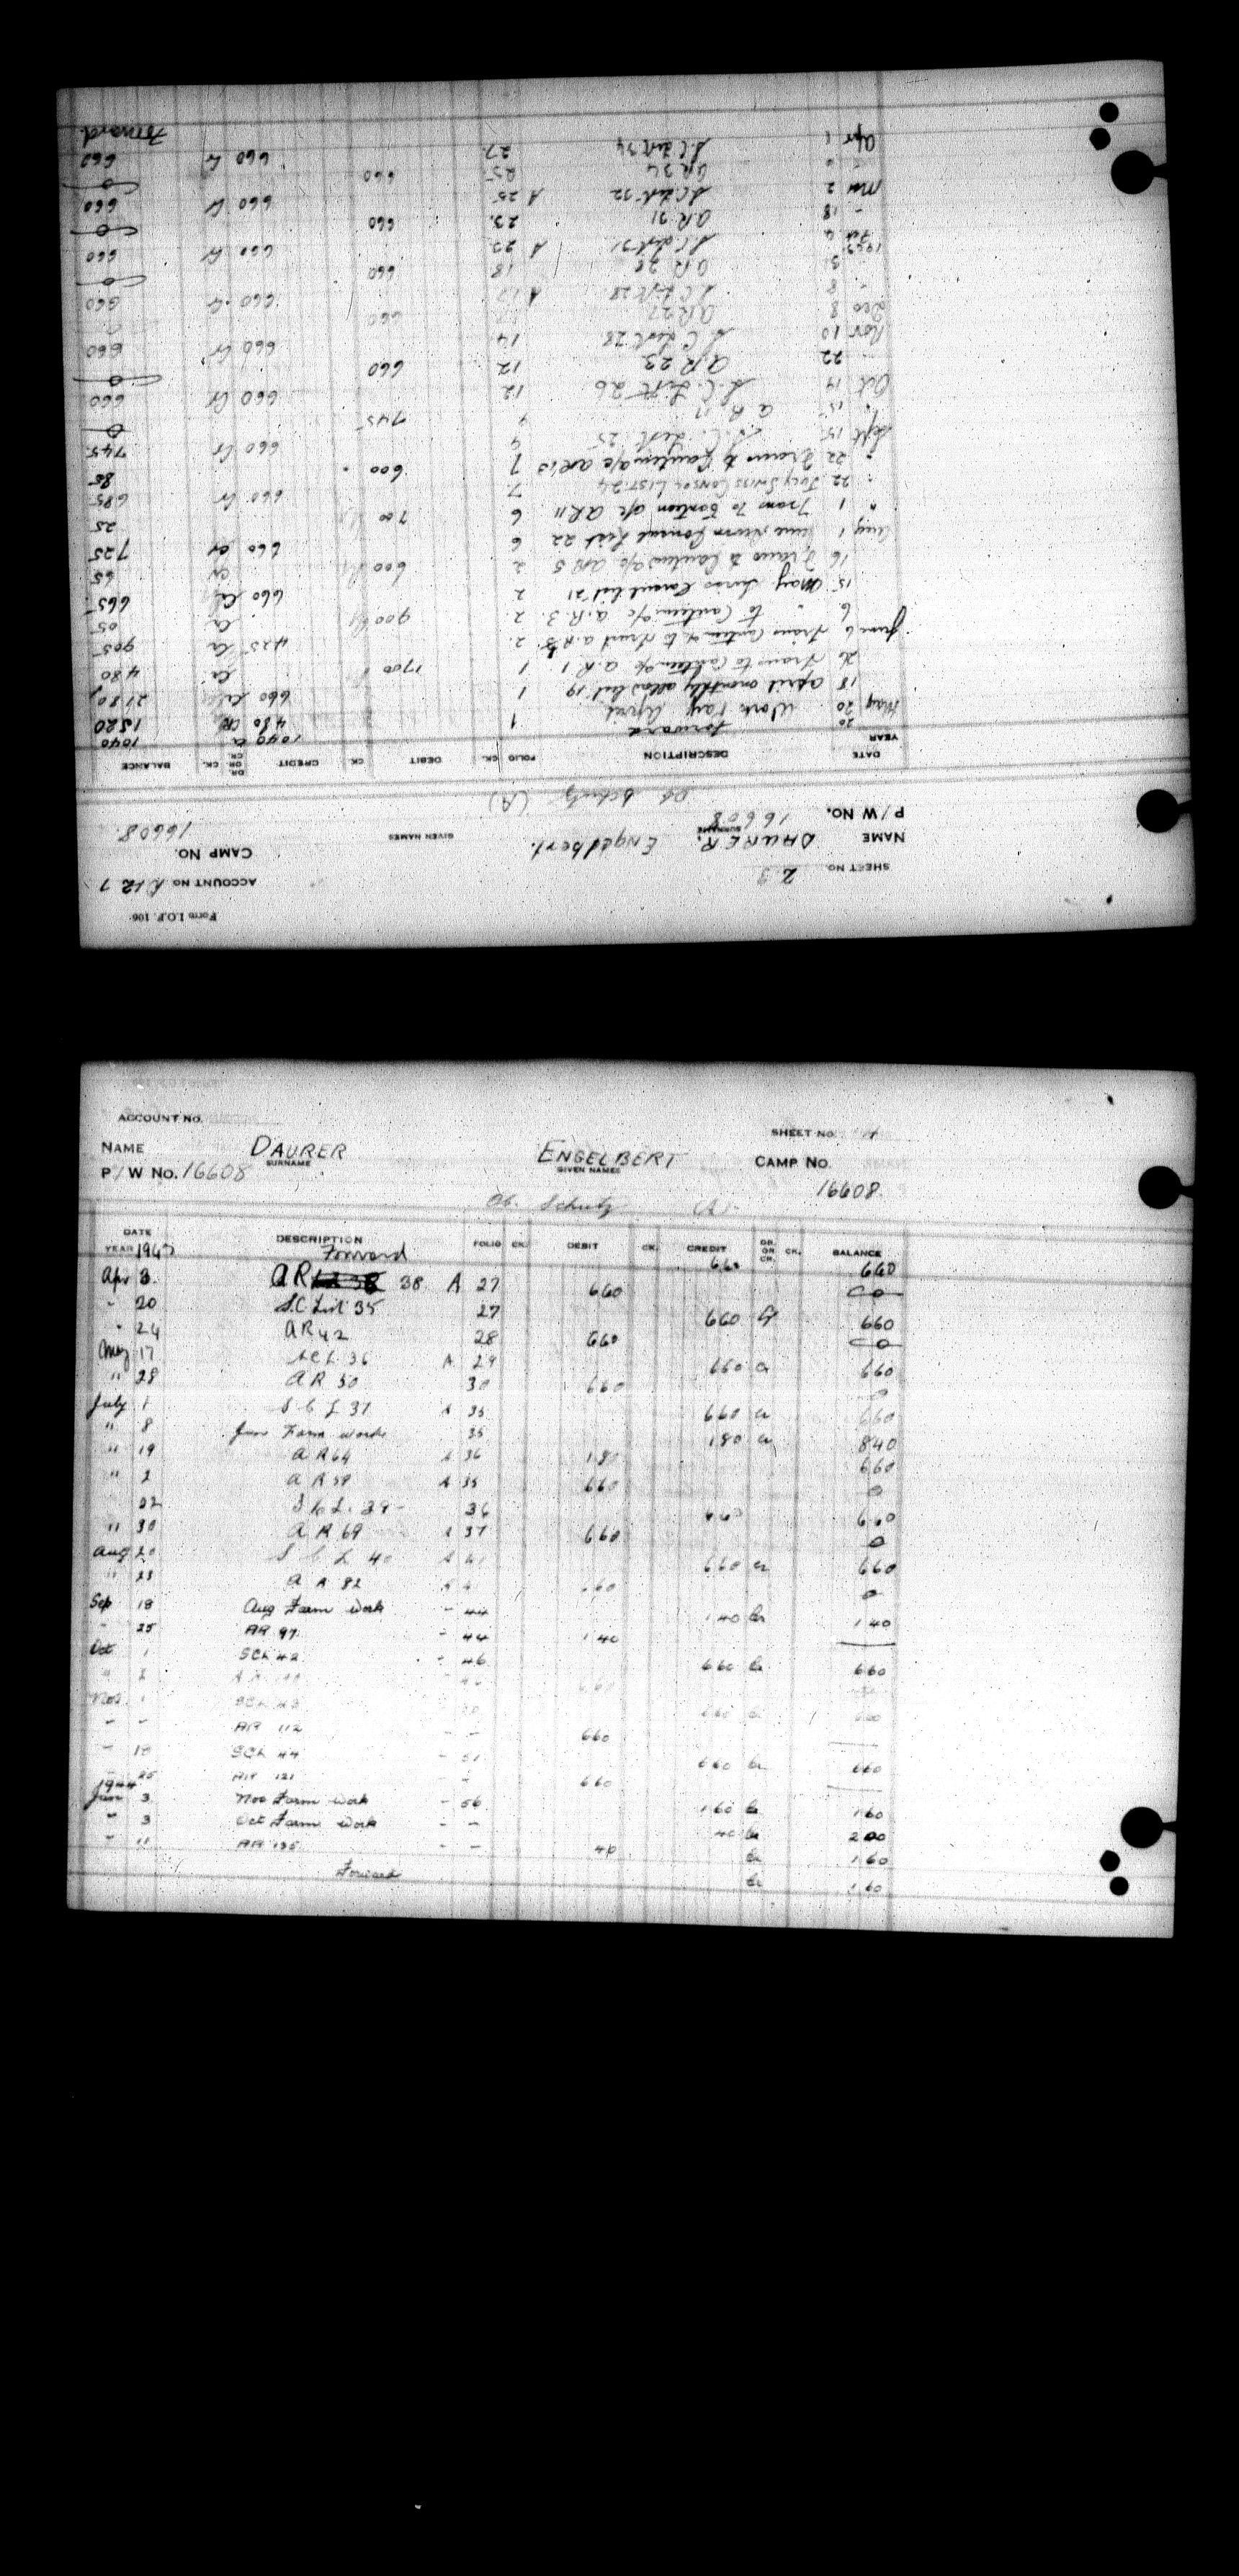 Form I.O.P. 106
SHEET NO.
ACCOUNT NO.
NAME DAURER, Engelbert.
SURNAME GIVEN NAMES
CAMP NO. 16608
P/W NO. 16608
Ob Schutz (A)
DATE YEAR DESCRIPTION FOLIO CK. DEBIT CK. CREDIT DR. OR CR. CK. BALANCE
forward 1040 Cr 1040
May 20 Work Pay April 1 480 CR 1520
18 April monthly allow list 19 1 660 2180
26 Trans to Canteen a/c A.R 1 1 1700 Cr 480
June 6 Trans Canteen to A.R 2. 425 Cr 905
6 " to Canteen a/c A.R. 3 2. 900 Cr 05
15 May Swiss Consul list 21 2 660 Cr 665
16 Trans to Canteen a/c AR 5 2 600 Cr 65
Aug 1 June Swiss Consul List 22 6 660 Cr 725
" 1 Trans to Canteen a/c AR 11 6 700 25
" 22 July Swiss Consul List 24 7 660 Cr 685
" 22 Trans to Canteen a/c AR 13 7 600 85
Sept 15 S.C. List 25 9 660 Cr 745
" 15 A R 9 745 0
Oct 14 S.C. List 26 12 660 Cr 660
22 A.R. 23 12 660 0
Nov 10 S C List 28 14 660 Cr 660
Dec 8 AR 27 660
" 8 S.C List 28 A 17 660 Cr 660
AR 28 18 660 0
1943 Feb 4 S C List 31 A 23 660 Cr 660
- 18 AR 31 23. 660 0
Mar 2 S C List 32 A 25 660 Cr 660
AR 34 25 660 0
Apr 1 S C List 34 27 660 Cr 660
Forward
ACCOUNT NO. SHEET NO.
NAME DAURER ENGELBERT CAMP NO.
SURNAME GIVEN NAMES
P/W NO. 16608 16608
Ob. Schutz (A)
DATE YEAR 1943 DESCRIPTION FOLIO CK. DEBIT CK. CREDIT DR. OR CR. CK. BALANCE
Forward 660 660
Apr 3 AR 38 A 27 660 0
" 20 S.C List 35 27 660 Cr 660
" 24 AR 42 28 660 0
May 17 S.C L. 36 A 29 660 Cr 660
" 28 A R 50 30 660 0
July 1 S C L 37 A 35 660 Cr 660
" 8 June Farm work 35 180 Cr 840
" 19 A R 64 A 36 180 660
" 2 A R 59 A 35 660 0
" 22 S C L. 39 36 660 660
" 30 A R 69 A 37 660 0
Aug 20 S C L 40 A 41 660 Cr 660
" 23 A R 82 660 0
Sep 18 Aug Farm work - 44 140 Cr 140
- 25 AR 97 - 44 140
Oct 1 SCL 42 - 46 660 Cr 660
Nov 1 SCL 43 660 Cr 660
- - AR 112 - - 660
- 18 SCL 44 - 51 660 Cr 660
- 25 AR 121 - 660
1944 Jan 3 Nov Farm work - 56 160 Cr 160
- 3 Oct Farm work - - 40 Cr 200
- 11 AR 135 - - 40 Cr 160
Forward Cr 160